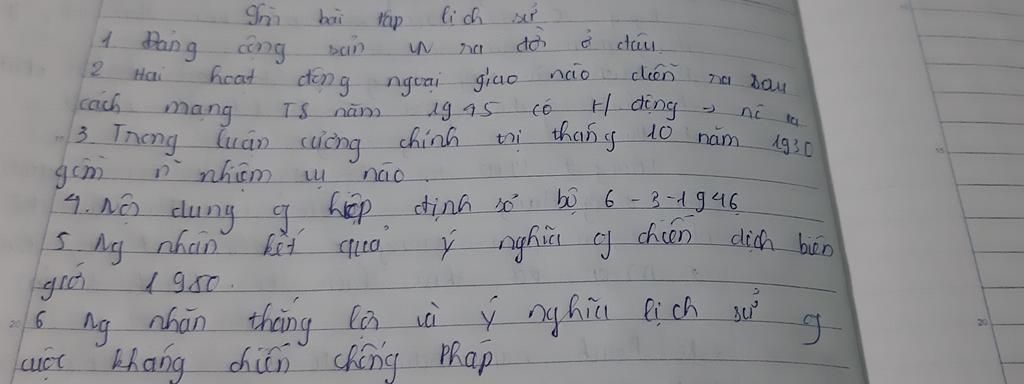 Ghi bài tập lịch sử
1 Đảng cộng sản VN ra đời ở đâu
2 Hai hoạt động ngoại giao nào diễn ra sau
cách mạng T8 năm 1945 có t/ động →
3. Trong luận cương chính trị tháng 10 năm 1930
gồm n nhiệm vụ nào.
4. Nội dung g hiệp định sơ bộ 6-3-1946
5 Ng nhân kết quả ý nghĩa g chiến dịch biên
giới 1950.
6 Ng nhân thắng lợi và ý nghĩa lịch sử g
cuộc kháng chiến chống Pháp